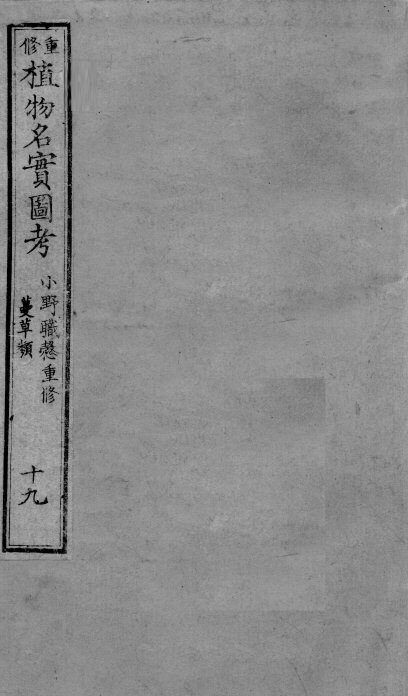 重修
植物名實圖考
小野職愨重修
蔓草類
十九